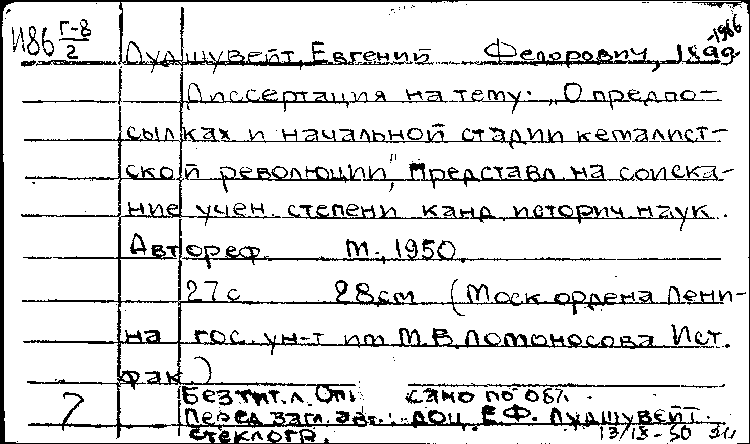 И86 Г-8/2
Лудшувейт, Евгений Федорович, 1899-1966
Диссертация на тему: „О предпо-
сылках и начальной стадии кемалист-
ской революции", Представл. на соиска-
ние учен. степени канд. историч. наук.
Автореф. М., 1950.
27 с. 28 см (Моск. ордена Лени-
на гос. ун-т им. М.В. Ломоносова Ист.
фак.)
7 Без тит. л. Оп сано по обл.
Перед загл. авт.: доц. Е.Ф. Лудшувейт.
Стеклогр. 13/IX-50